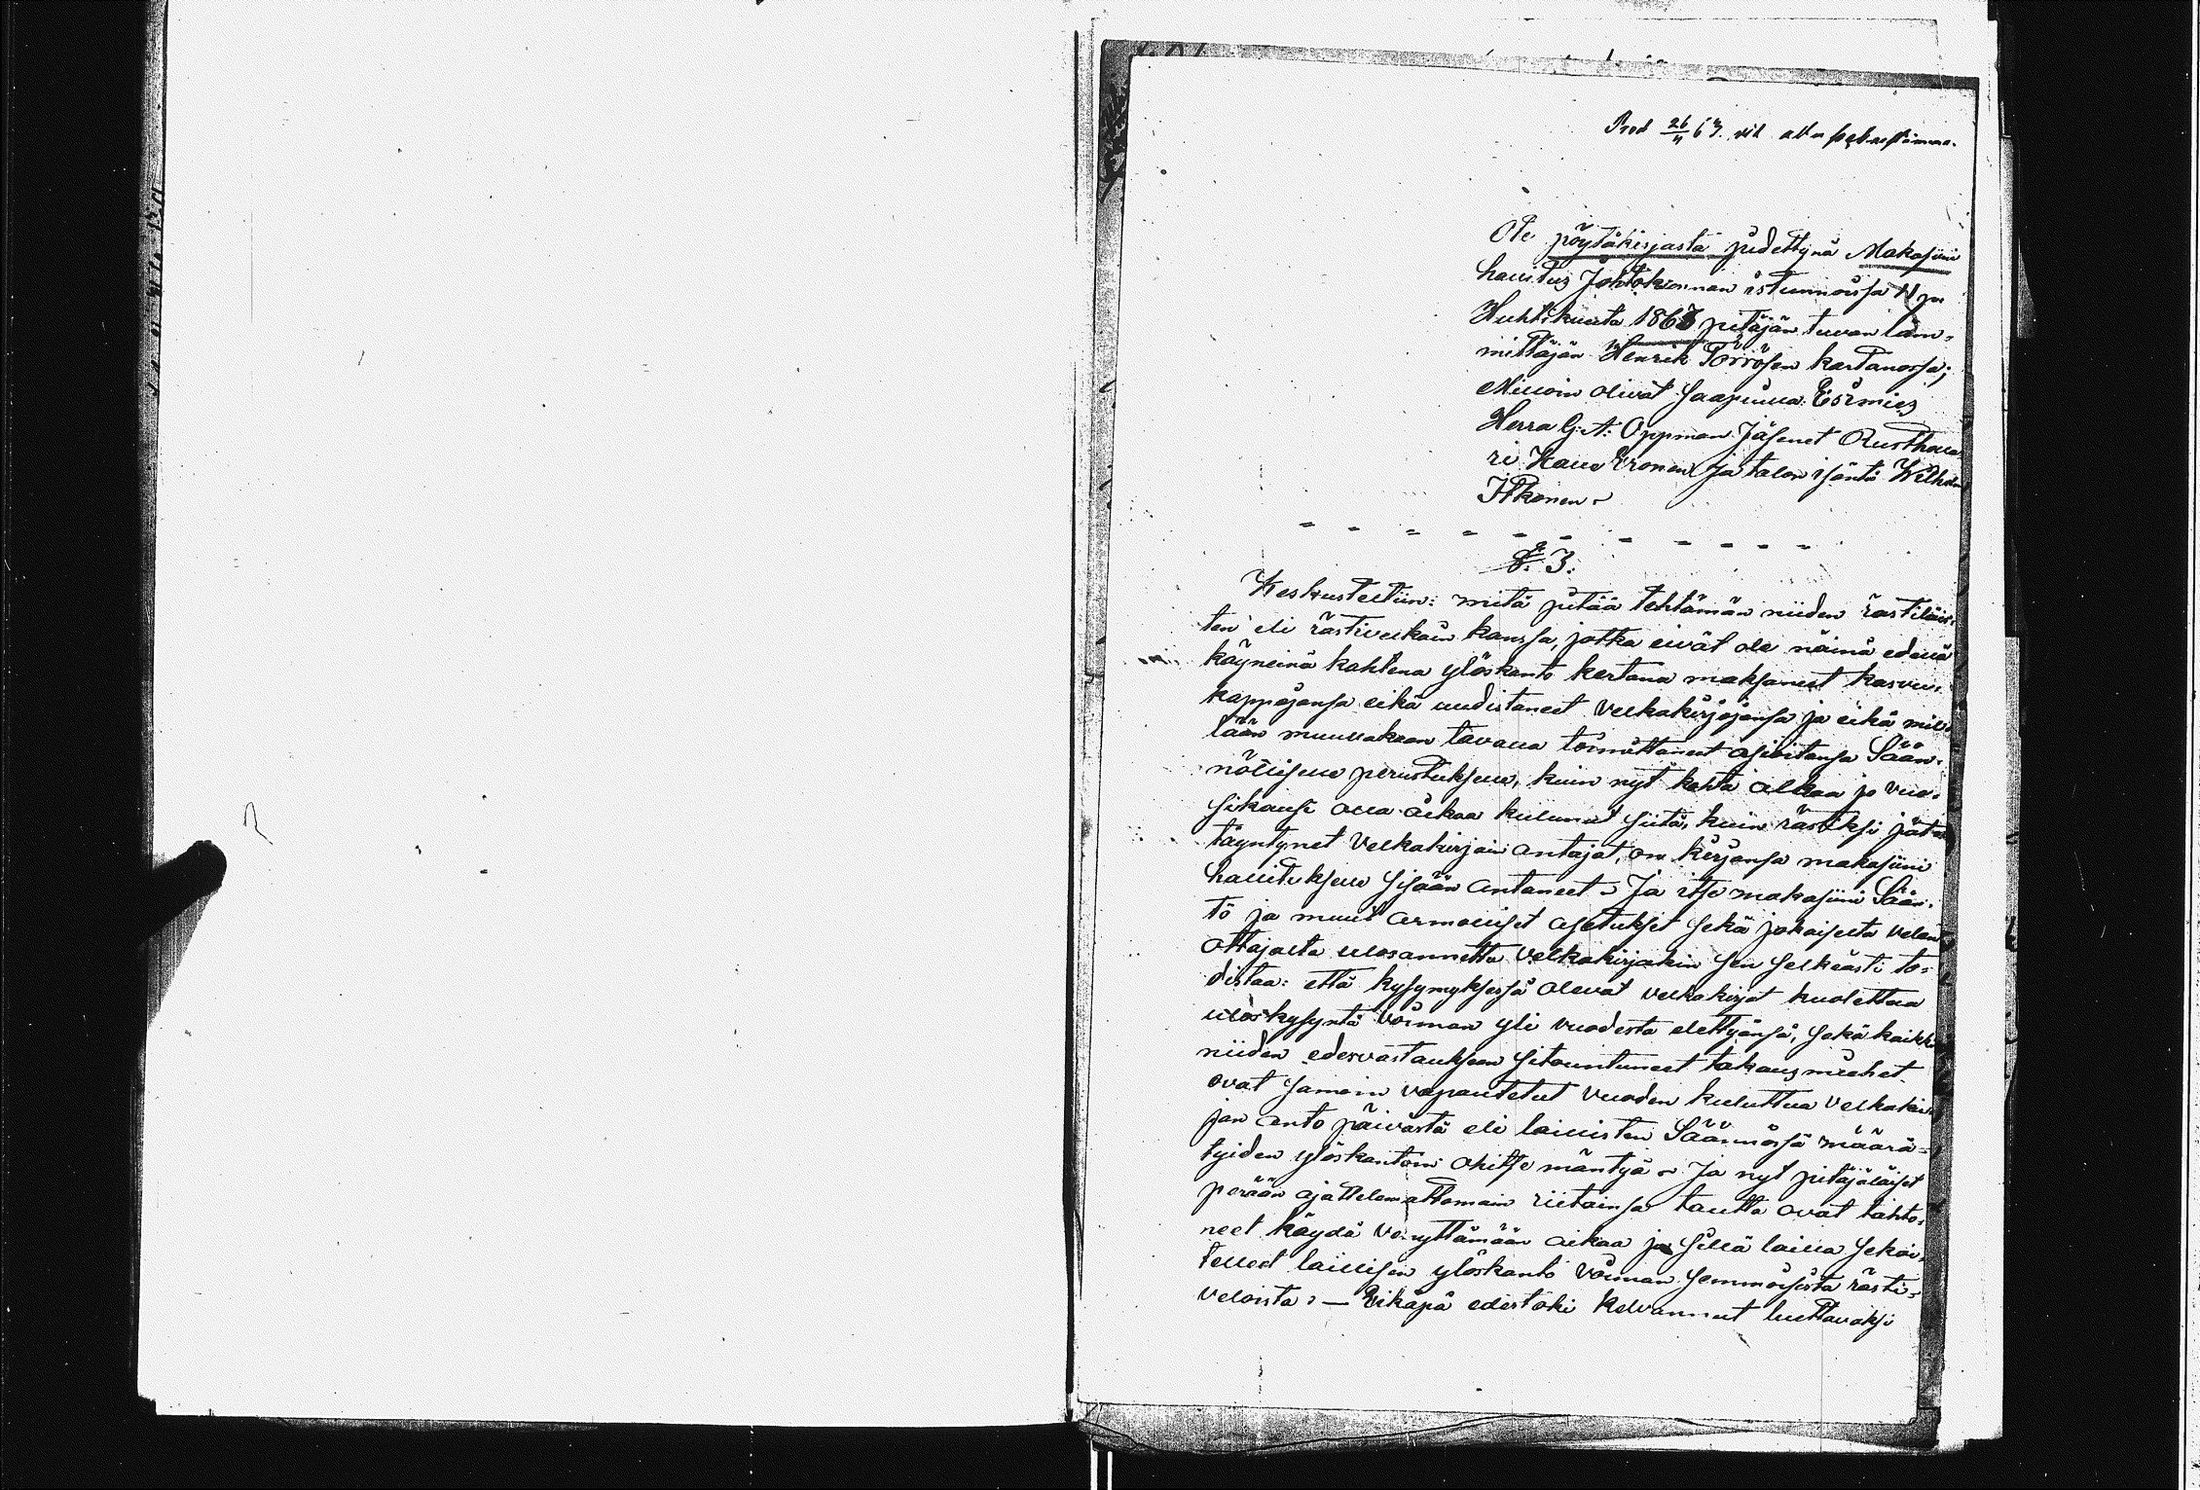 Prod 26/11 63.
Ote pöytäkirjasta pidettynä Makasiini
hallitus Johtokunnan istunnoissa
Huhtikuuta 1863 pitäjän tuvan läm-
mittäjän Henrik Törrösen kartanossa;
Milloin olivat saapuvilla: Esimies
Herra G: A: Oppman Jäsenet Rusthou
ri Kalle Eronen ja talon isäntä Wilhelm
Itkonen
- - - - - - - - - - -
§: 3:
Keskusteltiin: mitä pitää tehtämän niiden rästiläis-
ten eli rästivelkain kanssa, jotka eivät ole näinä edellä
käyneinä kahtena ylöskanto kertana maksaneet kasvu-
kappojansa eikä uudistaneet velkakirjojansa ja eikä mil-
lään muullakaan tavalla toimittaneet asioitansa Sään-
nölliselle perustukselle, kuin nyt kohta alkaa jo vuo-
sikausi olla aikaa kulunut siitä, kuin rästiksi jätet
täyntynet Velkakirjain antajat, on kirjansa makasiini
hallitukselle sisään antaneet. Ja itse makasiini Sään-
tö ja muut armolliset asetukset sekä jokaiselta velan
ottajalta ulosannettu Velkakirjakin sen selkeästi to-
distaa: että kysymyksessä olevat velkakirjat kuolettaa
uloskysyntä voiman yli vuodesta elettyänsä, sekä kaikki
niiden edesvastauksen sitountuneet takausmiehet
ovat samoin vapautetut vuoden kuluttua velkakir-
jan anto päivästä eli laillisten Säännössä määrä-
tyiden ylöskantoin ohitse mäntyä. Ja nyt pitäjäläiset
perään ajattelemattomain riitainsa tautta ovat tahto-
neet käydä venyttämään aikaa ja sillä lailla sekoi-
telleet laillisen ylöskanto voiman semmoisista rästi-
veloista: — Eikäpä edestäki kelvannut luettavaksi